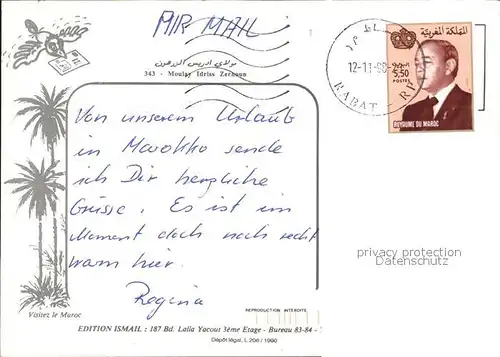 AIR MAIL
مولاي ادريس الزرهون
343 - Moulay Idriss Zerhoun
12-11-90
RABAT - RP
المملكة المغربية
5,50
POSTES
ROYAUME DU MAROC
Von unserem Urlaub
in Marokko sende
ich Dir herzliche
Grüsse. Es ist im
Moment doch noch recht
warm hier.
Regina
privacy protection
Datenschutz
Visitez le Maroc
REPRODUCTION INTERDITE
EDITION ISMAIL : 187 Bd. Lalla Yacout 3ème Etage - Bureau 83-84 -
Dépôt légal, L 206 / 1990